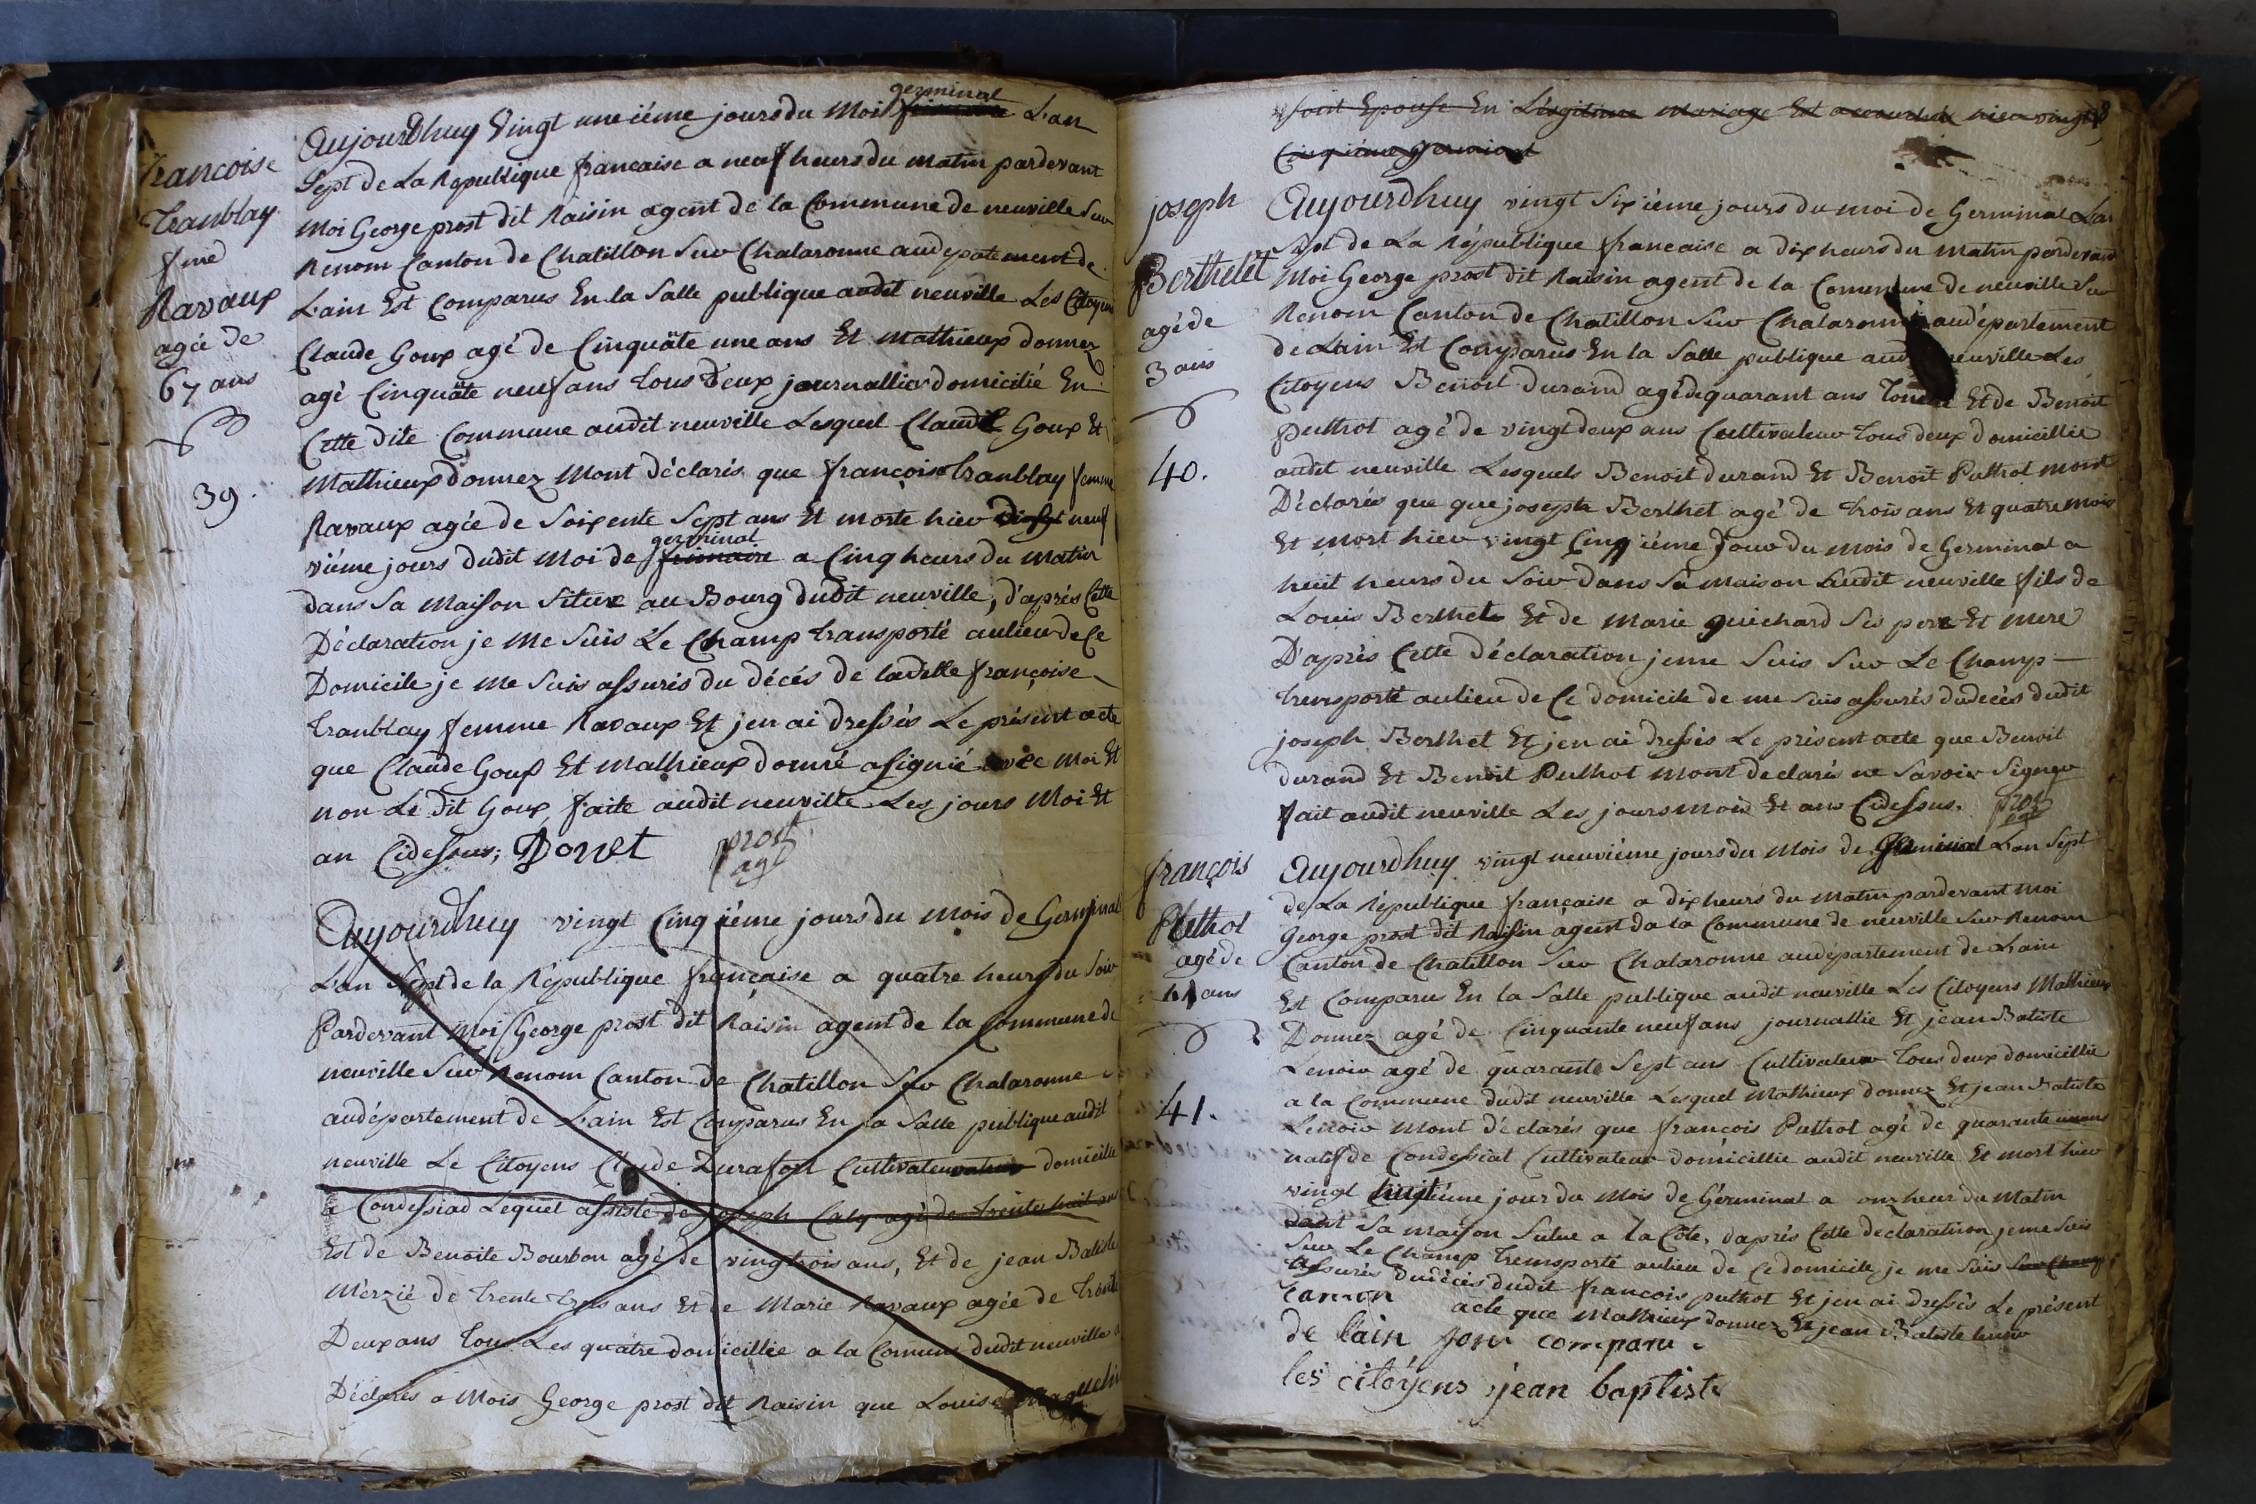 françoise
tranblay
fme
Ravaux
agée de
67 ans
39.
germinal
Aujourdhuy vingt une iéme jours du Mois frimaire L'an
Sept de La Republique francaise a neuf heurs du matin pardevant
Moi George prost dit Raisin agent de la Commune de neuville Sur
Renom Canton de Chatillon Sur Chalaronne audepatement de
L'ain Est Comparus En la Salle publique audit neuville Les Citoyens
Claude Goux agé de Cinquäte une ans Et Mathieux donnez
agé Cinquäte neuf ans tous deux journallier domicilié En
Cette dite Commune audit neuville Lesquel Claude Goux Et
Mathieux donnez Mont déclarés que françoise tranblay femme
Ravaux agée de Soixente Sept ans Et morte hier vingt neuf
germinal
viéme jours dudit Moi de frimaire a Cinq heurs du Matin
dans Sa Maison Situer au Bourg dudit neuville, d'aprés Cette
Déclaration je Me Suis Le Champ transporté aulieu de Ce
Domicile je me suis assuris du décés de ladelle françoise
tranblay femme Ravaux Et jen ai dressés Le présent acte
que Claude Goux Et Mathieux donné a signié avec Moi Et
non Le dit Goux faite audit neuville Les jours Moi Et
an Cidessus; Donet prost
agt
Aujourdhuy vingt Cinq iéme jours du mois de Germinal
L'an Sept de la République française a quatre heurs du Soir
Pardevant Moi George prost dit Raisin agent de la Commune de
neuville Sur Renom Canton de Chatillon Sur Chalaronne
audépartement de L'ain Est Comparus En la Salle publique audit
neuville Le Citoyens Claude Durafort Cultivateur domicille
a Condessiad Lequel assisté de joseph Caty agé de trente huit ans
Est de Benoite Bourbon agé de vingtrois ans, Et de jean Batiste
Mérzié de trente trois ans Et de Marie Ravaux agée de trente
Deux ans tous Les quâtre domicillée a la Comune dudit neuville
Déclarés a Mois George prost dit Raisin que Louise
Soit Epouse En Légitime Mariage Est accouchée hier vingt
Cinquiéme germinal
joseph
Berthelet
agé de
3 ans
40.
Aujourdhuy vingt Six iéme jours du moi de Germinal L'an
Sept de La République francaise a dix heurs du Matin pardevant
Moi George prost dit Raisin agent de la Commune de neuville Sur
Renom Canton de Chatillon Sur Chalaronne audépartement
de Lain Est Comparus En la Salle publique audit neuville Les
Citoyens Benoit durand agé de quarant ans Et de Benoit
Puthot agé de vingt deux ans Cultivateur tous deux domicillié
audit neuville Lesquels Benoit durand Et Benoit Puthot Mont
Déclarés que que joseph Berthet agé de trois ans Et quatre mois
Et mort hier vingt Cinq iéme Jour du Mois de Germinal a
huit heurs du Soir dans Sa Maison audit neuville fils de
Louis Berthet Et de Marie guichard Ses pere Et mere
D'aprés Cette déclaration jeme Suis Sur Le Champ
transporté aulieu de Ce domicile de me Suis assurés du decés dudit
joseph Berthet Et jen ai dressés Le présent acte que Benoit
durand Et Benoit Puthot Mont declarés ne Savoir Signer
fait audit neuville Les jours Mois Et ans Cidessus. prost
agt
françois
Puthot
agé de
41 ans
41.
Aujourdhuy vingt neuviéme jours du Mois de Germinal L'an Sept
de La République française a dix heurs du Matin pardevant moi
George prost dit Raisin agent da la Commune de neuville Sur Renom
Canton de Chatillon Sur Chalaronne audépartement de Lain
Est Comparus En la Salle publique audit neuville Les Citoyens Mathieux
Donnez agé de Cinquante neuf ans journallié Et jean Batiste
Lenoir agé de quarante Sept ans Cultivateur tous deux domicillié
a la Commune dudit neuville Lesquel Mathieux donnez Et jean Batiste
Lenoir Mont déclarés que françois Puthot agé de quarante unans
natif de Condessiat Cultivateur domicillié audit neuville Et mort hier
vingt huitiéme jour du Mois de Gérminal a onzheur du Matin
dans Sa maison Situe a La Côte, d'aprés Cette declaration jeme Suis
Sur Le Champ transporté aulieu de Cedomicile je me Suis Sur Champ
Assurés dudécés dudit francois puthot Et jen ai dressés Le présent
acte que Mathieux donnez Et jean Batiste lenoir
canton
de lain son comparu
les citoyens jean baptiste